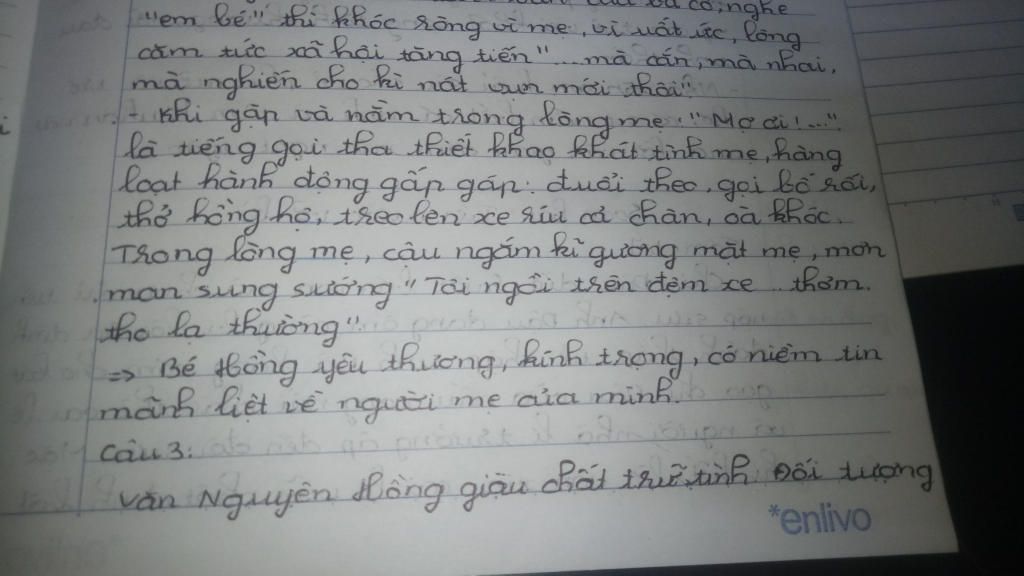 của bà cô, nghe
"em bé" thì khóc ròng vì mẹ, vì uất ức, lòng
căm tức xã hội tăng tiến "... mà cắn, mà nhai,
mà nghiến cho kì nát vụn mới thôi".
- Khi gặp và nằm trong lòng mẹ: "Mợ ơi!..."
là tiếng gọi tha thiết khao khát tình mẹ, hàng
loạt hành động gấp gáp: đuổi theo, gọi bối rối,
thở hồng hộc, trèo lên xe ríu cả chân, oà khóc.
Trong lòng mẹ, cậu ngắm kĩ gương mặt mẹ, mơn
man sung sướng "Tôi ngồi trên đệm xe ... thơm
tho lạ thường".
=> Bé Hồng yêu thương, kính trọng, có niềm tin
mãnh liệt về người mẹ của mình.
Câu 3:
Văn Nguyên Hồng giàu chất trữ tình. Đối tượng
*enlivo